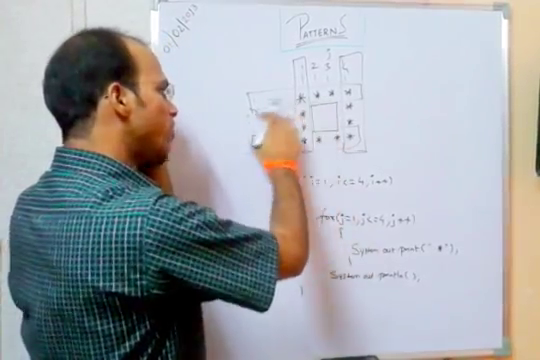 01/02/2013
PATTERNS
j
1 2 3 4
* * * *
*
*
* * * *
i=1, i<=4, i++)
for(j=1, j<=4, j++)
{
System.out.print(" * ");
}
System.out.println();
}